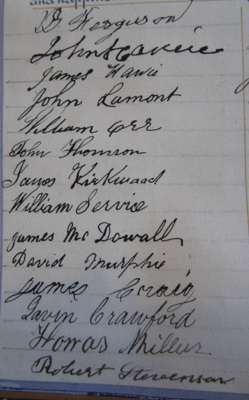 D Ferguson
John Lamont
William Orr
John Thomson
James Kirkwood
William Service
James McDowall
David Murphie
James Craig
Gavin Crawford
Thomas Miller
Robert Stevenson